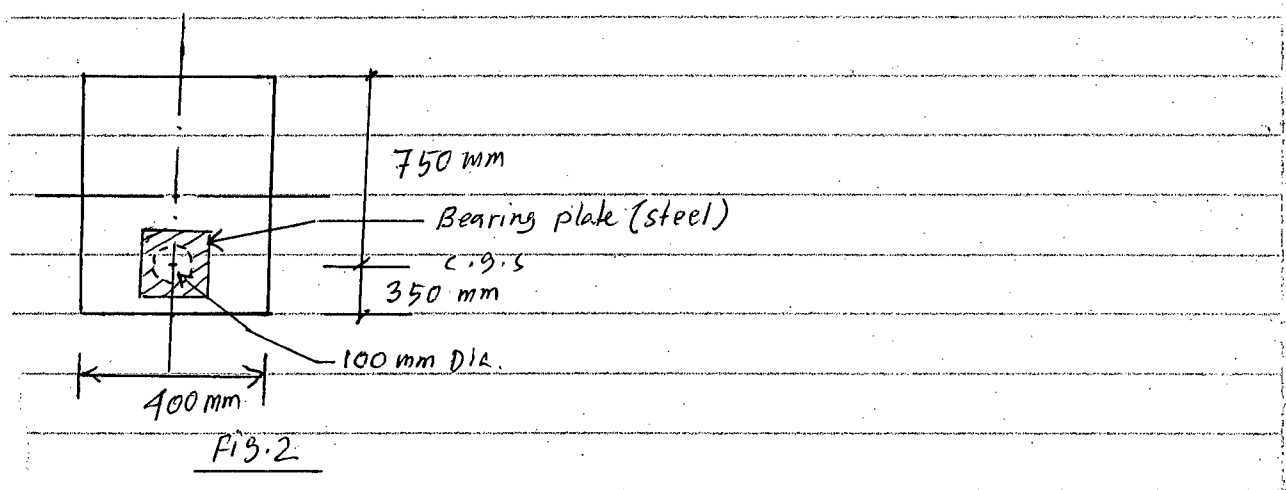 750 mm
Bearing plate (steel)
c.g.s
350 mm
100 mm Dia.
400 mm
Fig.2